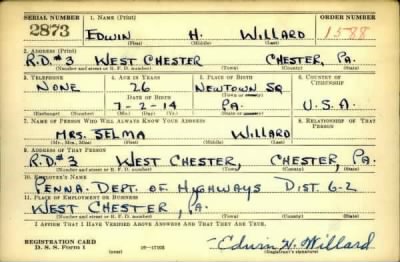 SERIAL NUMBER 1. NAME (Print) ORDER NUMBER
2873 EDWIN H. WILLARD 1588
(First) (Middle) (Last)
2. ADDRESS (Print)
R.D.#3 WEST CHESTER CHESTER, PA.
(Number and street or R. F. D. number) (Town) (County) (State)
3. TELEPHONE 4. AGE IN YEARS 5. PLACE OF BIRTH 6. COUNTRY OF CITIZENSHIP
NONE 26 NEWTOWN SQ
DATE OF BIRTH
7-2-14 PA. U.S.A.
(Mo.) (Day) (Yr.) (State or country)
7. NAME OF PERSON WHO WILL ALWAYS KNOW YOUR ADDRESS 8. RELATIONSHIP OF THAT PERSON
MRS. SELMA WILLARD
(Mr., Mrs., Miss) (First) (Middle) (Last)
9. ADDRESS OF THAT PERSON
R.D.#3 WEST CHESTER, CHESTER, PA.
(Number and street or R. F. D. number) (Town) (County) (State)
10. EMPLOYER'S NAME
PENNA. DEPT. OF HIGHWAYS DIST. 6-2
11. PLACE OF EMPLOYMENT OR BUSINESS
WEST CHESTER, PA.
(Number and street or R. F. D. number) (Town) (County) (State)
I AFFIRM THAT I HAVE VERIFIED ABOVE ANSWERS AND THAT THEY ARE TRUE.
REGISTRATION CARD
D. S. S. Form 1 (over) 16—17105 Edwin H. Willard
(Registrant's signature)